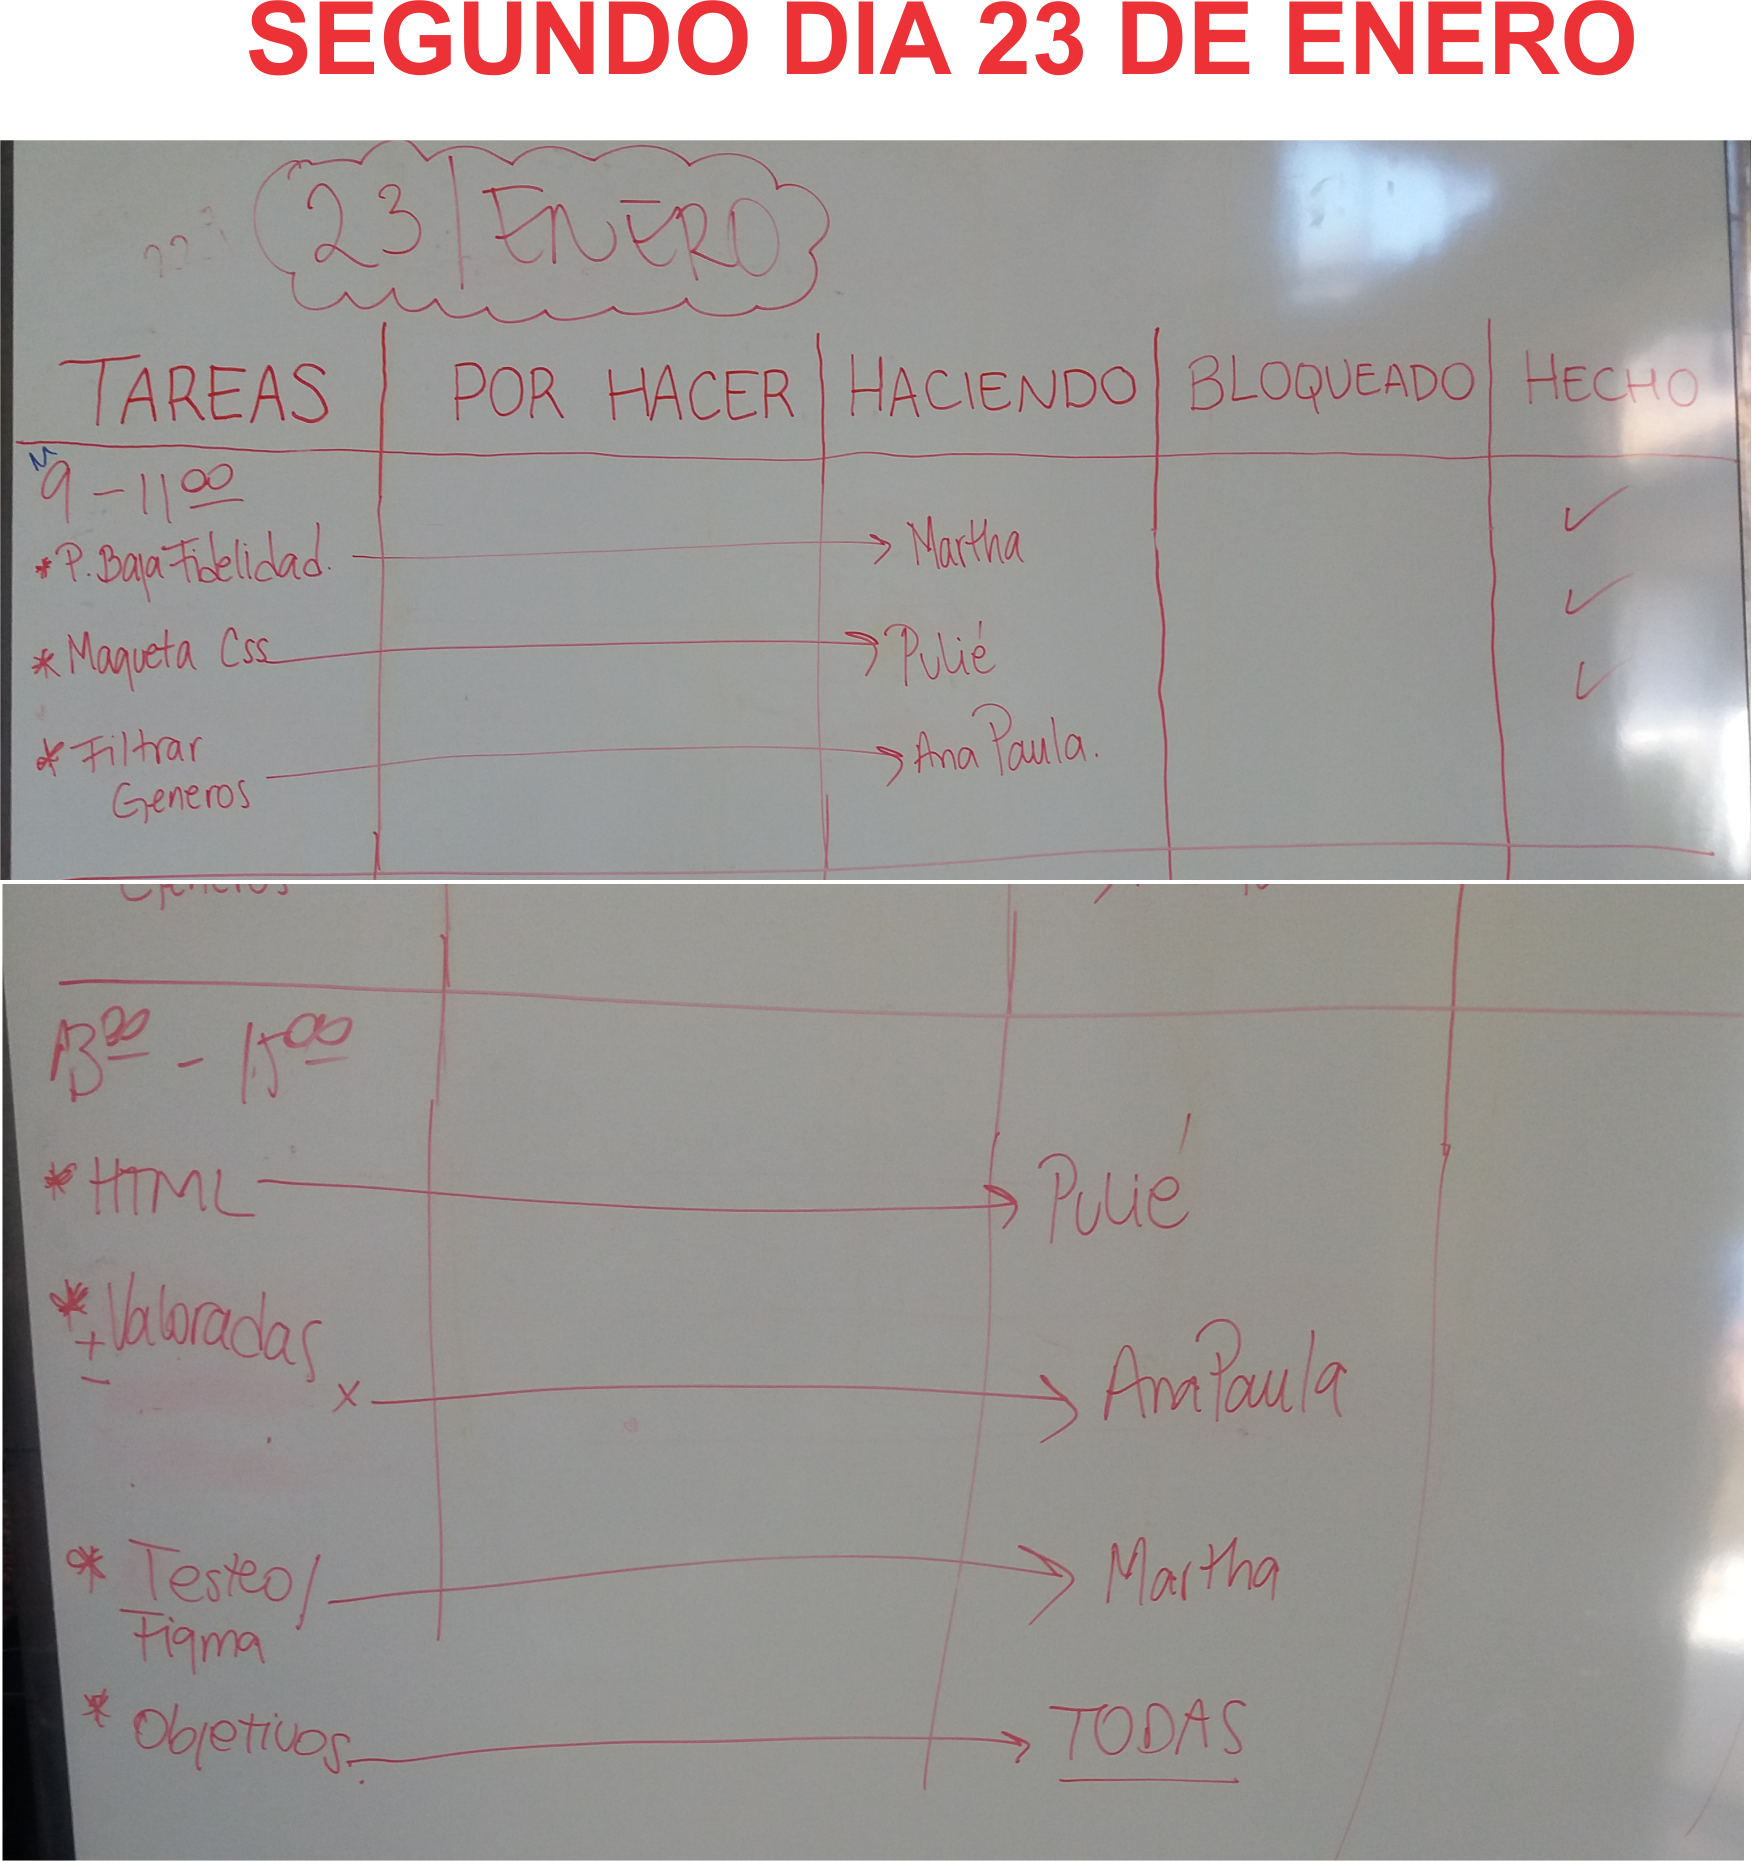 SEGUNDO DIA 23 DE ENERO
23 | ENERO
TAREAS POR HACER HACIENDO BLOQUEADO HECHO
9 - 11 00
* P. Baja Fidelidad. Martha ✓
* Maqueta Css Pulié ✓
* Filtrar Ana Paula. ✓
Generos
13 00 - 15 00
* HTML Pulié
* Valoradas
+
-
x Ana Paula
* Testeo/ Martha
Figma
* Objetivos. TODAS